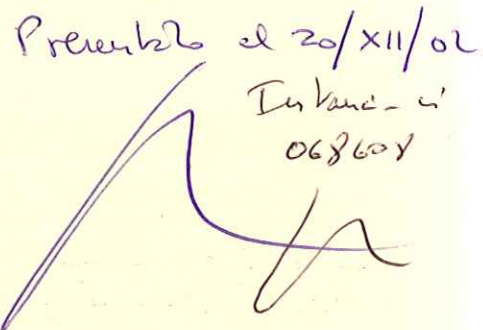 Presentado el 20/XII/02
Instancia nº
068608